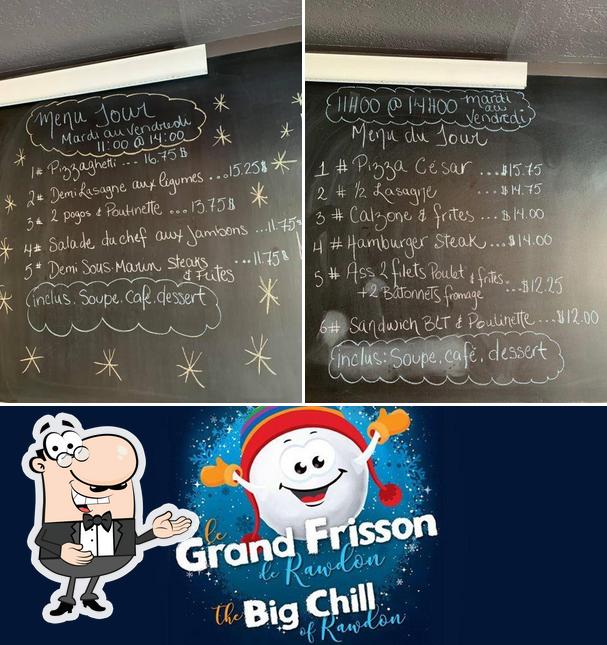 Menu Jour
Mardi au Vendredi
11:00 @ 14:00
1# Pizzaghetti ... 16.75$
2# Demi Lasagne aux légumes ... 15.25$
3# 2 pogos & Poutinette ... 13.75$
4# Salade du chef aux Jambons ... 11.75$
5# Demi Sous-Marin Steaks & Frites ... 11.75$
inclus. Soupe. Café. dessert
11H00 @ 14H00 mardi au Vendredi
Menu du Jour
1 # Pizza César ... $15.75
2 # ½ Lasagne ... $14.75
3 # Calzone & frites ... $14.00
4 # Hamburger Steak ... $14.00
5 # Ass 2 filets Poulet & frites
+ 2 Batonnets fromage ... $12.25
6# Sandwich BLT & Poutinette ... $12.00
inclus: Soupe, café, dessert
le
Grand Frisson
de Rawdon
the Big Chill
of Rawdon